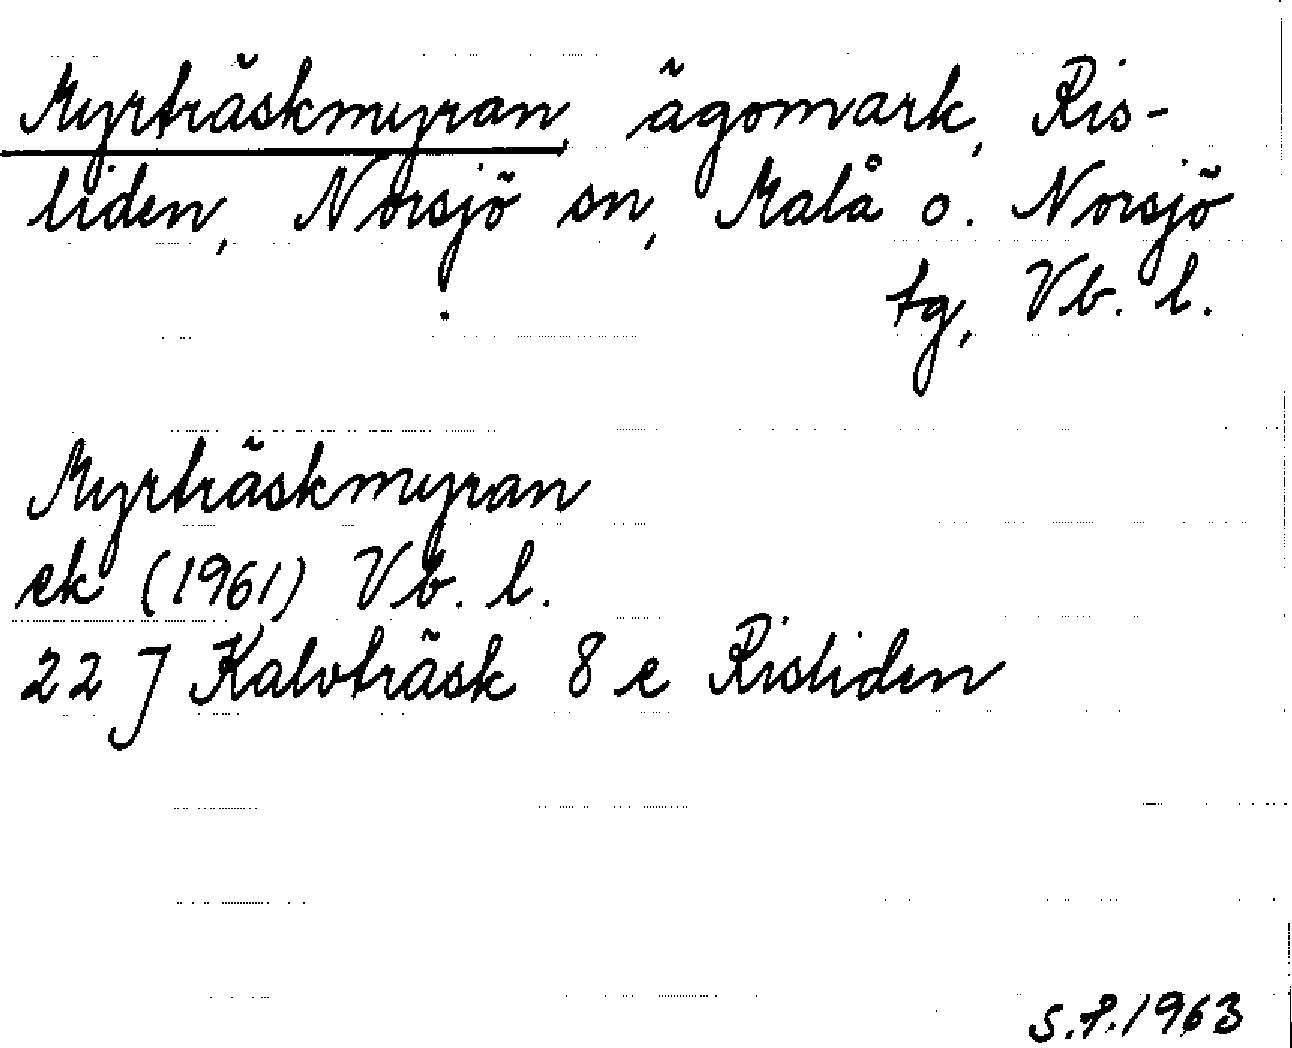 Myrträskmyran, ägomark, Ris-
liden, Norsjö sn, Malå o. Norsjö
tg, Vb. l.
Myrträskmyran
ek (1961) Vb. l.
22 J Kalvträsk 8 e Risliden
S.P.1963